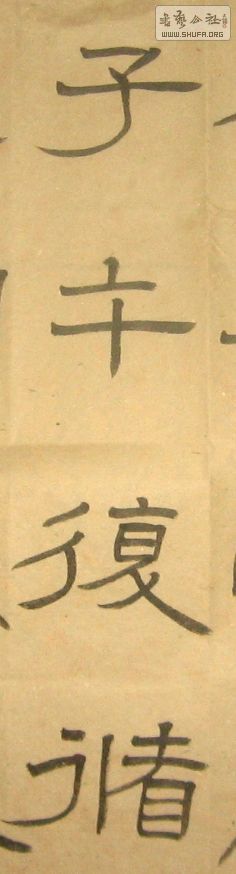 書藝公社
WWW.SHUFA.ORG
子午復循